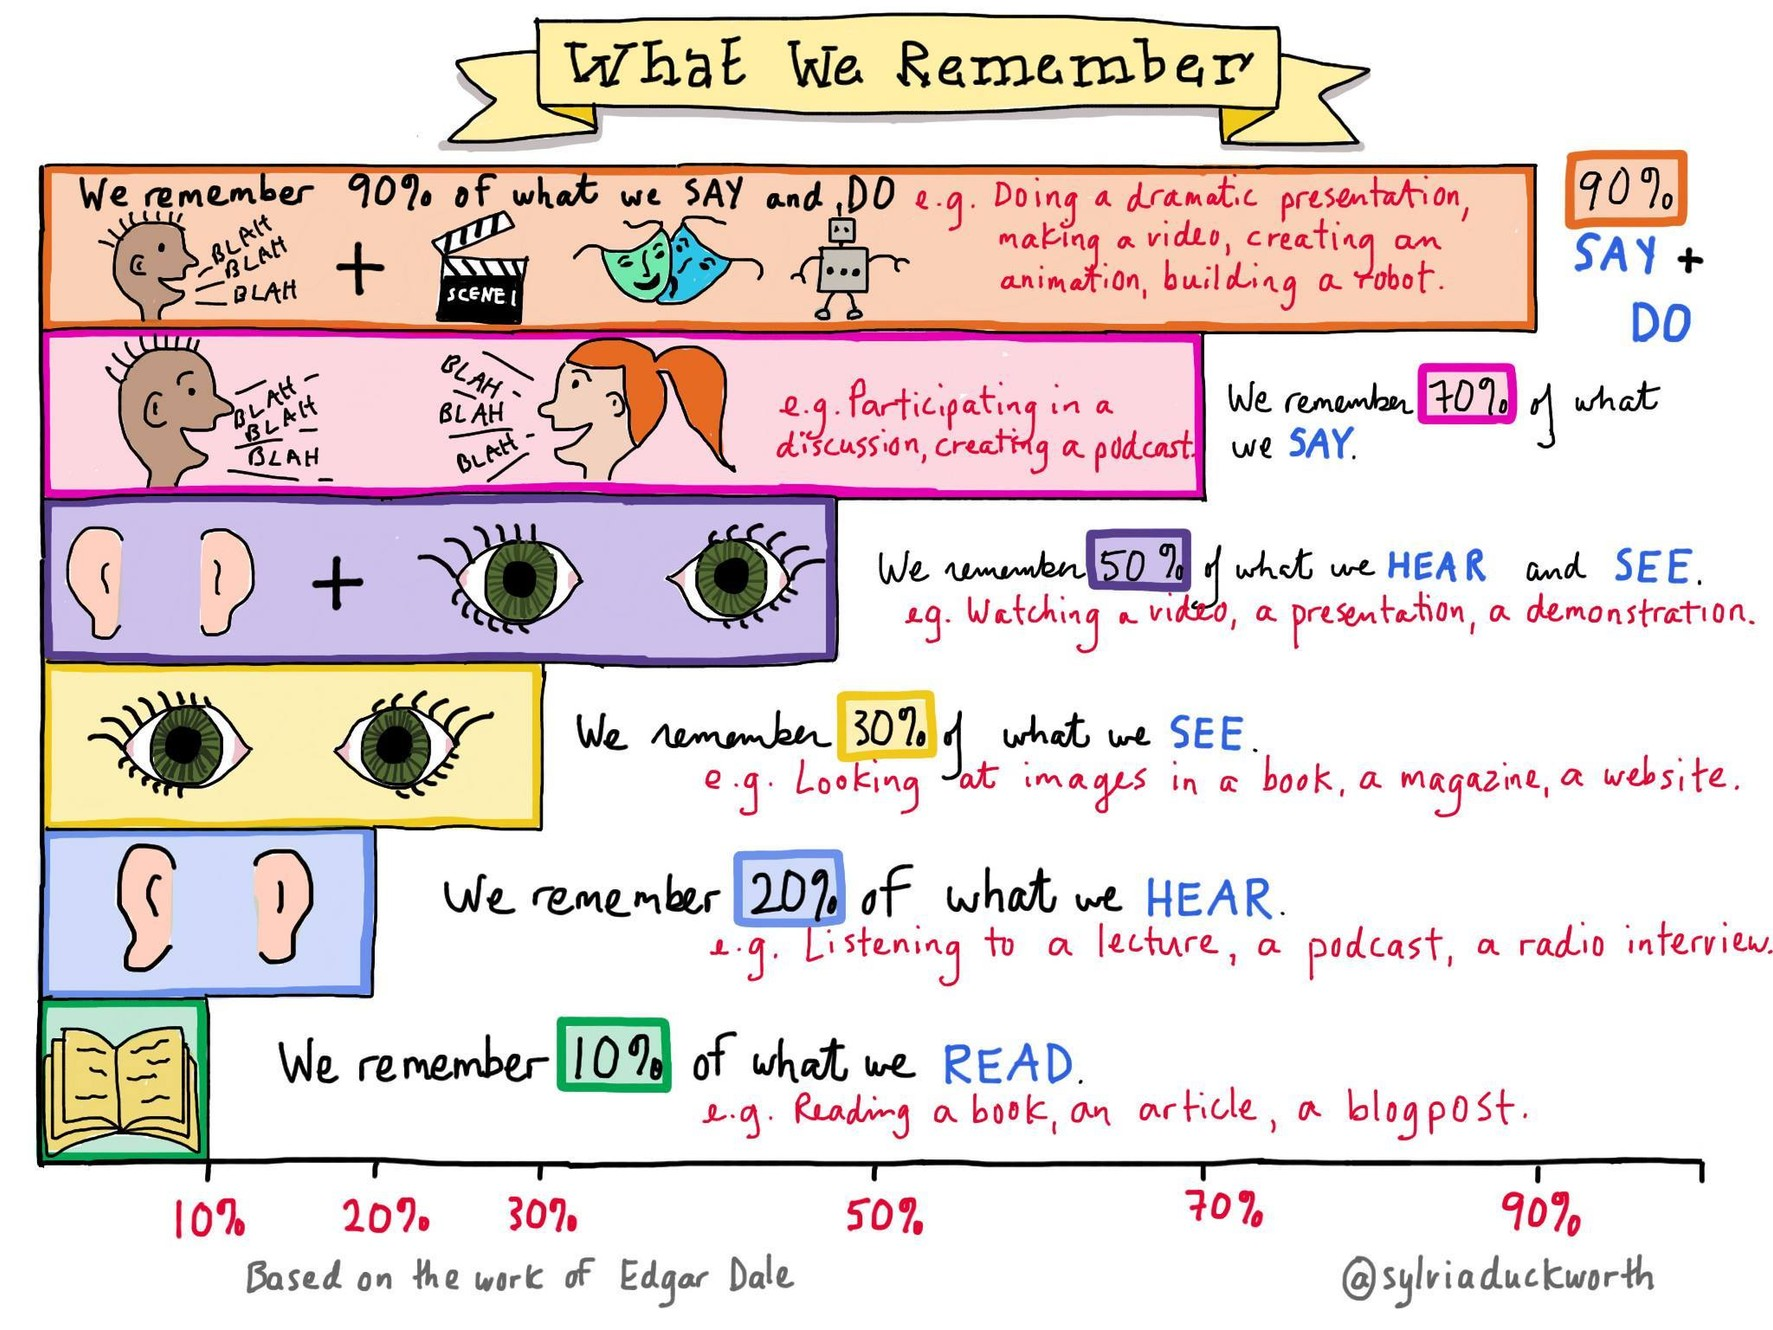 What We Remember
We remember 90% of what we SAY and DO
e.g. Doing a dramatic presentation,
making a video, creating an
animation, building a robot.
90%
SAY +
DO
BLAH
BLAH
BLAH
+
SCENE 1
BLAH
BLAH
BLAH
BLAH
BLAH
BLAH
e.g. Participating in a
discussion, creating a podcast.
We remember 70% of what
we SAY.
+
We remember 50% of what we HEAR and SEE.
eg. Watching a video, a presentation, a demonstration.
We remember 30% of what we SEE.
e.g. Looking at images in a book, a magazine, a website.
We remember 20% of what we HEAR.
e.g. Listening to a lecture, a podcast, a radio interview.
We remember 10% of what we READ.
e.g. Reading a book, an article, a blogpost.
10% 20% 30% 50% 70% 90%
Based on the work of Edgar Dale
@sylviaduckworth